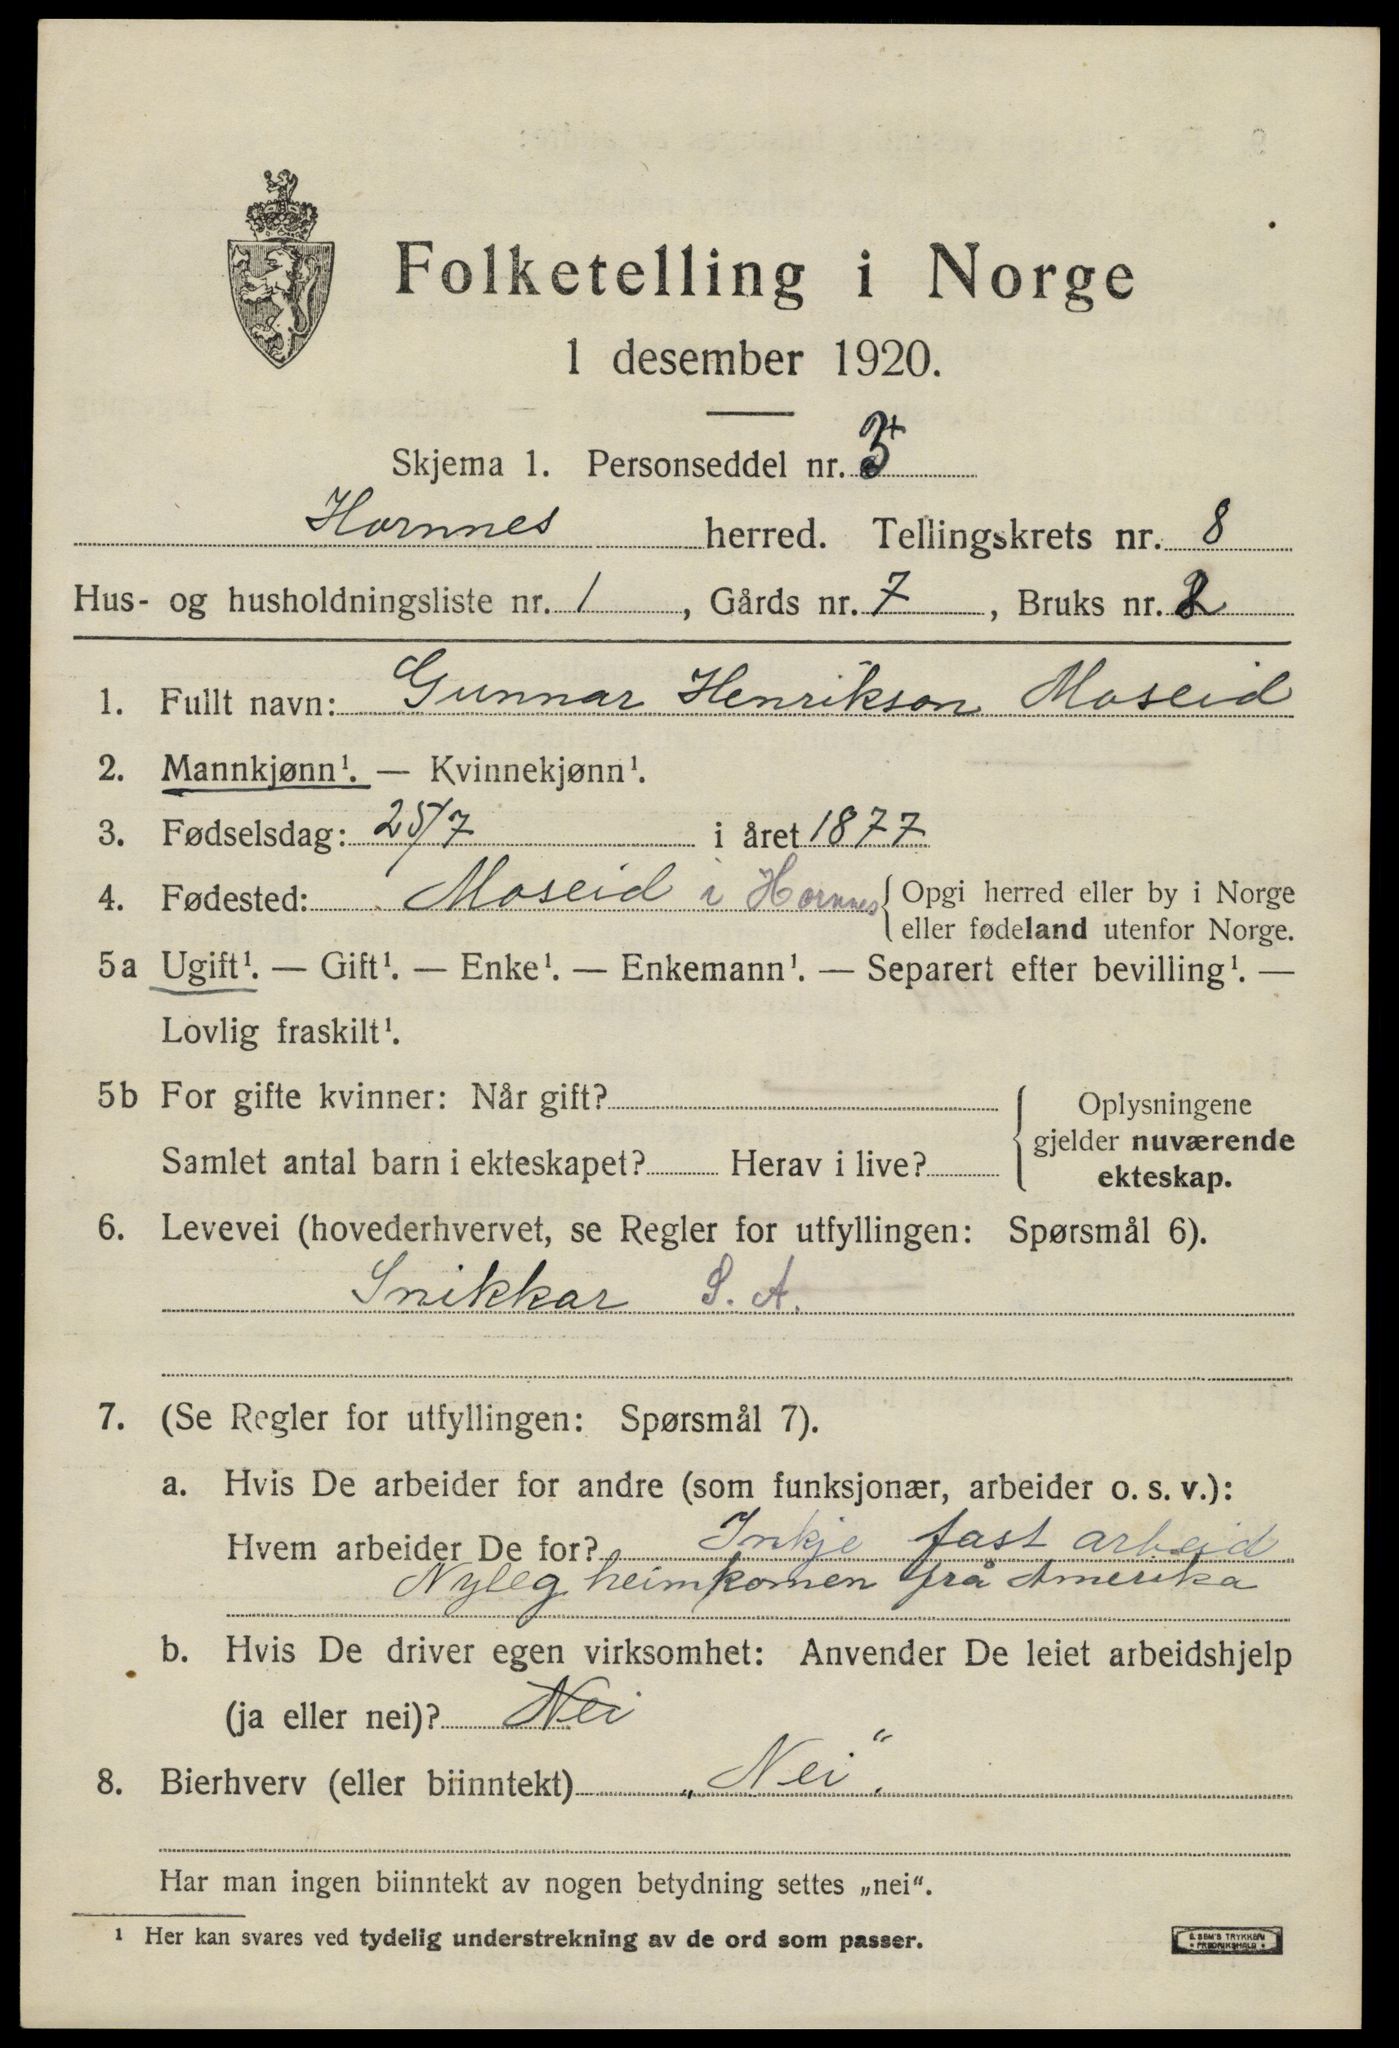 Folketelling i Norge
1 desember 1920.
Skjema 1. Personseddel nr. 3
Hornnes herred. Tellingskrets nr. 8
Hus- og husholdningsliste nr. 1, Gårds nr. 7, Bruks nr. 2
1. Fullt navn: Gunnar Henrikson Moseid
2. Mannkjønn¹. — Kvinnekjønn¹.
3. Fødselsdag: 25/7 i året 1877
4. Fødested: Moseid i Hornnes { Opgi herred eller by i Norge
eller fødeland utenfor Norge.
5a Ugift¹. — Gift¹. — Enke¹. — Enkemann¹. — Separert efter bevilling¹. —
Lovlig fraskilt¹.
5b For gifte kvinner: Når gift? { Oplysningene
gjelder nuværende
Samlet antal barn i ekteskapet? Herav i live?
ekteskap.
6. Levevei (hovederhvervet, se Regler for utfyllingen: Spørsmål 6).
Snikkar S. A.
7. (Se Regler for utfyllingen: Spørsmål 7).
a. Hvis De arbeider for andre (som funksjonær, arbeider o. s. v.):
Hvem arbeider De for? Inkje fast arbeid
Nyleg heimkomen frå Amerika
b. Hvis De driver egen virksomhet: Anvender De leiet arbeidshjelp
(ja eller nei)? Nei
8. Bierhverv (eller biinntekt) „Nei“.
Har man ingen biinntekt av nogen betydning settes „nei“.
¹ Her kan svares ved tydelig understrekning av de ord som passer.
E. SEM'S TRYKKERI
• FREDRIKSHALD •